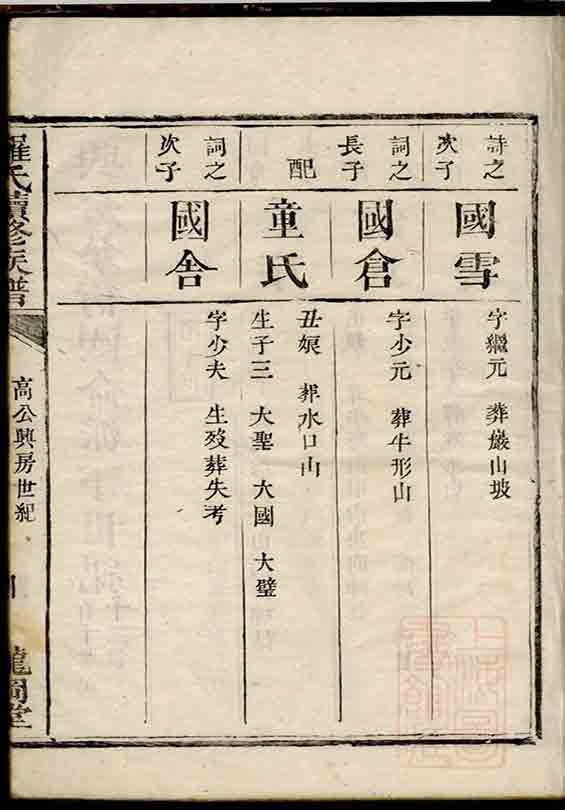 詩之次子
國雪
字繼元 葬巖山坡
詞之長子
國倉
字少元 葬牛形山
配
童氏
丑娠 葬水口山
生子三 大聖 大國 大璧
詞之次子
國舍
字少夫 生歿葬失考
羅氏續修族譜
高公興房世紀